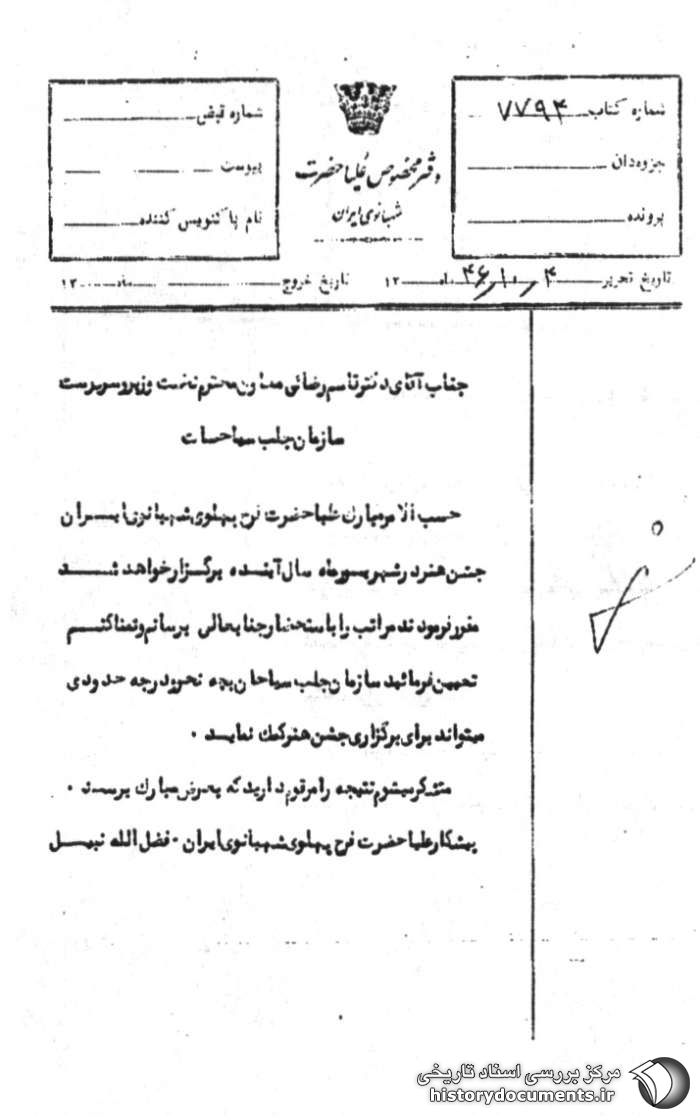 شماره کتاب ۷۷۹۴
جزوه‌دان
پرونده
دفتر مخصوص علیا حضرت
شهبانوی ایران
شماره قبض
پیوست
نام پاکنویس کننده
تاریخ تحریر ۴ ر۱۰ر۴۶ ماه ۱۳
تاریخ خروج ماه ۱۳
جناب آقای دکتر قاسم رضائی معاون محترم نخست وزیر و سرپرست
سازمان جلب سیاحان
حسب الامر مبارك علیا حضرت فرح پهلوی شهبانوی ایران
جشن هنر در شهریور ماه سال آینده برگزار خواهد شد
مقرر فرمودند مراتب را باستحضار جنابعالی برسانم و تمنا کنم
تعیین فرمائید سازمان جلب سیاحان بچه نحو و درجه حدودی
میتواند برای برگزاری جشن هنر کمك نماید ۰
متشکر میشوم نتیجه را مرقوم دارید که بعرض مبارك برسد ۰
پیشکار علیا حضرت فرح پهلوی شهبانوی ایران - فضل الله نبیل
مرکز بررسی اسناد تاریخی
historydocuments.ir